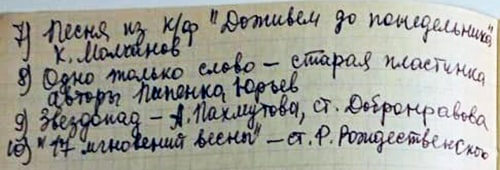 7) Песня из к/ф "Доживем до понедельника"
К. Молчанов
8) Одно только слово – старая пластинка
авторы Пипенка, Юрьев
9) Звездопад – А. Пахмутова, ст. Добронравова
10) "17 мгновений весны" – ст. Р. Рождественского